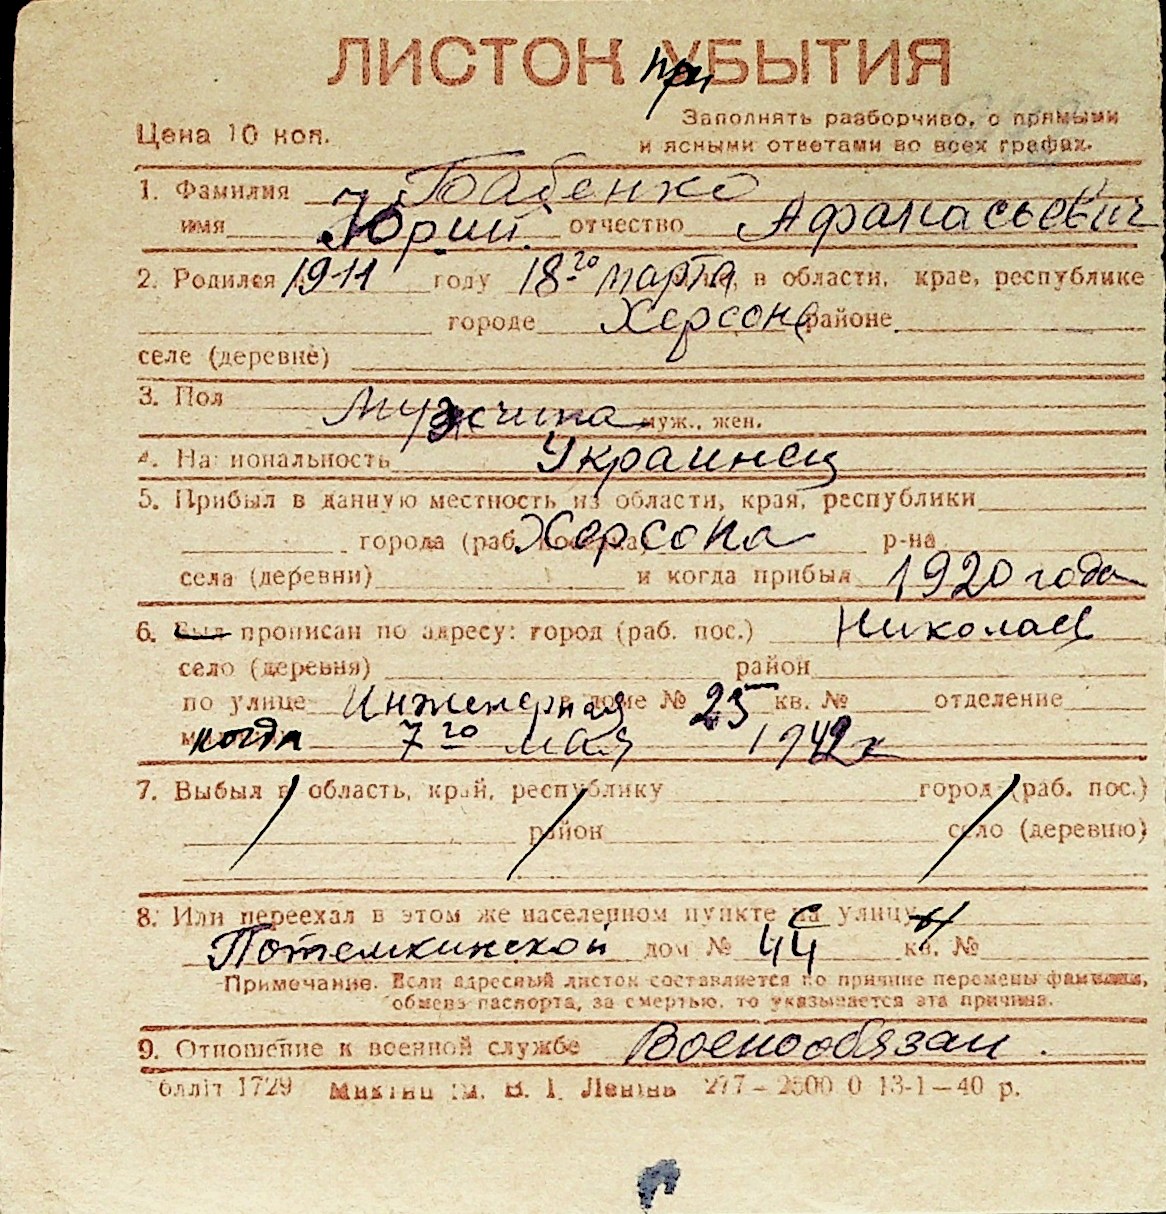 ЛИСТОК при УБЫТИЯ
Цена 10 коп.
Заполнять разборчиво, с прямыми
и ясными ответами во всех графах.
1. Фамилия Бабенко
имя Юрий отчество Афанасьевич
2. Родился 1911 году 18-го марта, в области, крае, республике
городе Херсоне районе
селе (деревне)
3. Пол Мужчина муж., жен.
4. Национальность Украинец
5. Прибыл в данную местность из области, края, республики
города (раб. Херсона р-на
села (деревни) и когда прибыл 1920 года
6. Был прописан по адресу: город (раб. пос.) Николаев
село (деревня) район
по улице Инженерная в доме № 25 кв. № отделение
когда 7го мая 1942 г
7. Выбыл в область, край, республику город (раб. пос.)
район село (деревню)
8. Или переехал в этом же населенном пункте с улицы
Потемкинской дом № 44 кв. №
Примечание. Если адресный листок составляется по причине перемены фамилии,
обмена паспорта, за смертью, то указывается эта причина.
9. Отношение к военной службе Военообязан.
блліт 1729 В. І. Леніна 277 — 2500 0 13-1—40 р.